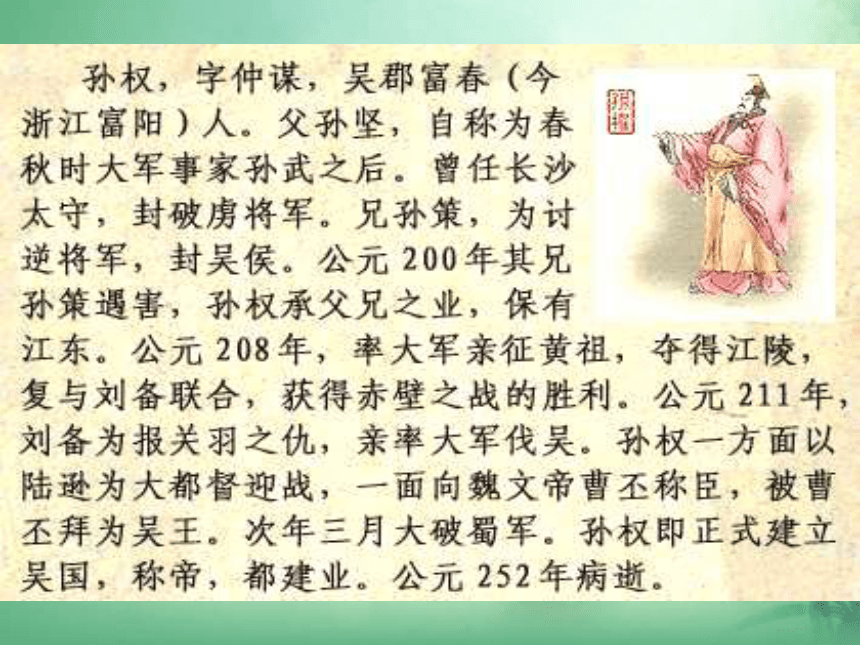 孙权，字仲谋，吴郡富春（今
浙江富阳）人。父孙坚，自称为春
秋时大军事家孙武之后。曾任长沙
太守，封破虏将军。兄孙策，为讨
逆将军，封吴侯。公元 200 年其兄
孙策遇害，孙权承父兄之业，保有
江东。公元 208 年，率大军亲征黄祖，夺得江陵，
复与刘备联合，获得赤壁之战的胜利。公元 211 年，
刘备为报关羽之仇，亲率大军伐吴。孙权一方面以
陆逊为大都督迎战，一面向魏文帝曹丕称臣，被曹
丕拜为吴王。次年三月大破蜀军。孙权即正式建立
吴国，称帝，都建业。公元 252 年病逝。
孙權